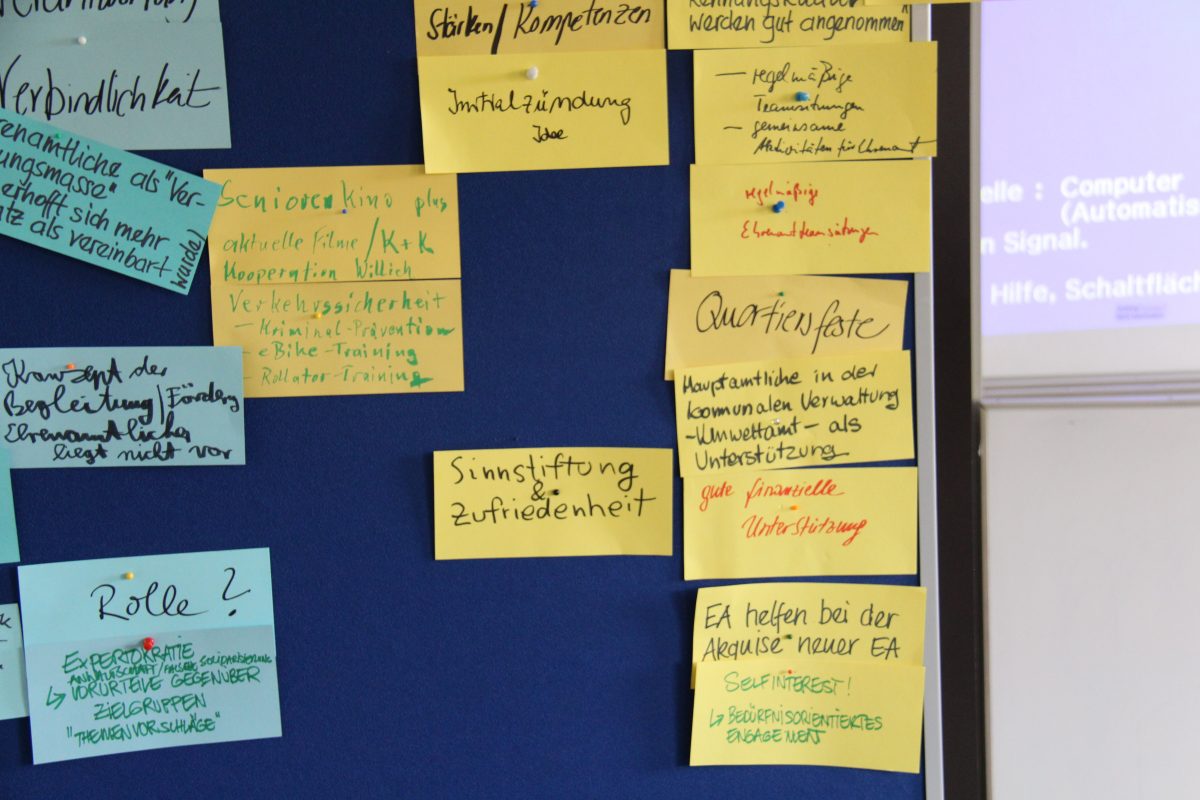 Verbindlichkeit
enamtliche als "Ver-
ungsmasse"
erhofft sich mehr
tz als vereinbart
wurde)
Konzept der
Begleitung/Förderg
Ehrenamtlicher
liegt nicht vor
Rolle?
EXPERTOKRATIE
ANWALTSCHAFT/FALSCHE SOLIDARISIERUNG
↳ VORURTEILE GEGENÜBER
ZIELGRUPPEN
"THEMENVORSCHLÄGE"
Senioren Kino plus
aktuelle Filme/K+K
Kooperation Willich
Verkehrssicherheit
- Kriminal-Prävention
- eBike-Training
- Rollator-Training
Stärken/Kompetenzen
Initialzündung
Idee
Sinnstiftung
&
Zufriedenheit
werden gut angenommen
- regelmäßige
Teamsitzungen
- gemeinsame
Aktivitäten für Ehrenamt
regelmäßige
Ehrenamtteamsitzungen
Quartiersfeste
Hauptamtliche in der
kommunalen Verwaltung
-Umweltamt- als
Unterstützung
gute finanzielle
Unterstützung
EA helfen bei der
Akquise neuer EA
SELFINTEREST!
↳ BEDÜRFNISORIENTIERTES
ENGAGEMENT
elle : Computer
(Automatis
n Signal.
Hilfe, Schaltfläch